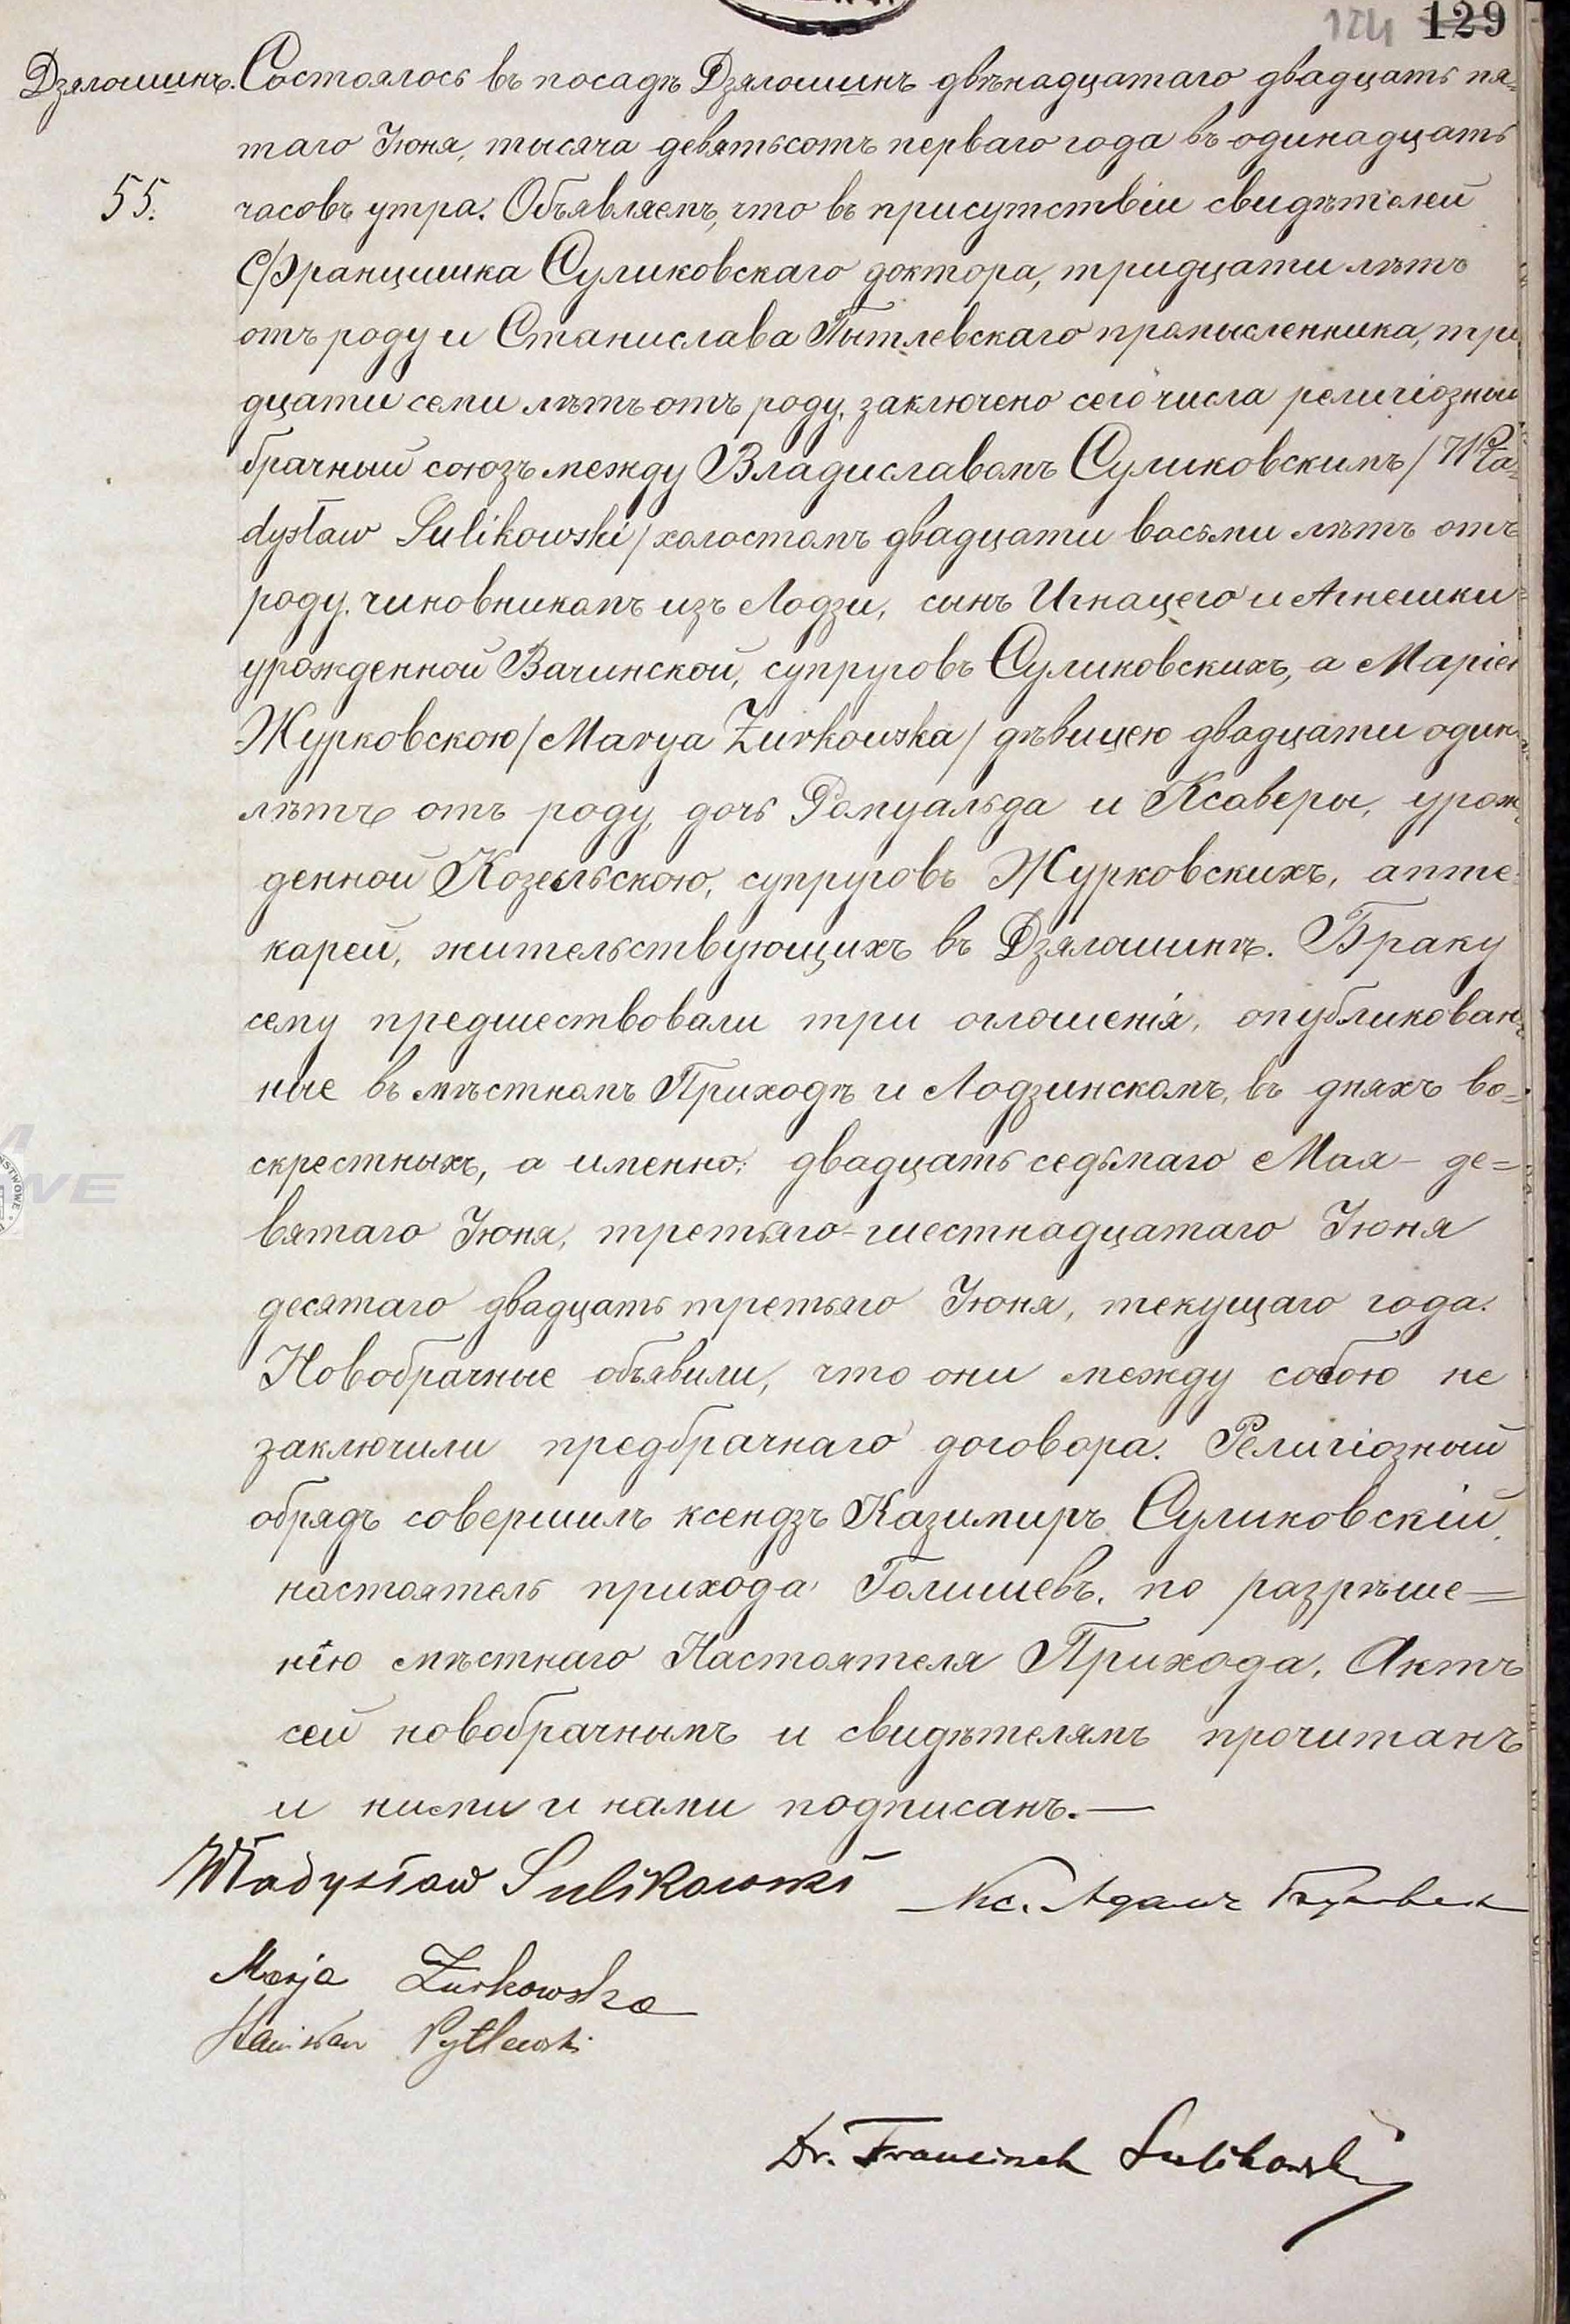 124 129
Дзялошинъ. Состоялось въ посадѣ Дзялошинѣ двѣнадцатаго двадцать пя=
таго Іюня, тысяча девятьсотъ перваго года въ одинадцать
55. часовъ утра. Объявляемъ, что въ присутствіи свидѣтелей
Францишка Суликовскаго доктора, тридцати лѣтъ
отъ роду и Станислава Пытлевскаго промысленника, три
дцати семи лѣтъ отъ роду, заключено сего числа религіозный
брачный союзъ между Владиславомъ Суликовскимъ /Wła=
dysław Sulikowski/ холостомъ двадцати восьми лѣтъ отъ
роду, чиновникомъ изъ Лодзи, сынъ Игнацего и Агнешки
урожденной Вачинской, супруговъ Суликовскихъ, а Маріею
Журковскою /Marya Żurkowska/ дѣвицею двадцати один
лѣтъ отъ роду, дочь Ромуальда и Ксаверы, урож
денной Козельскою, супруговъ Журковскихъ, апте=
карей, жительствующихъ въ Дзялошинѣ. Браку
сему предшествовали три оглошенія, опубликован=
ные въ мѣстномъ Приходѣ и Лодзинскомъ, въ дняхъ во=
скрестныхъ, а именно: двадцать седьмаго Мая - де=
вятаго Іюня, третьяго-шестнадцатаго Іюня
десятаго двадцать третьяго Іюня, текущаго года.
Новобрачные объявили, что они между собою не
заключили предбрачнаго договора. Религіозный
обрядъ совершилъ ксендзъ Казимиръ Суликовскій,
настоятель прихода Голишевъ, по разрѣше=
нію мѣстнаго Настоятеля Прихода. Актъ
сей новобрачнымъ и свидѣтелямъ прочитанъ
и ними и нами подписанъ.—
Władysław Sulikowski Кс. Адамъ
Marja Żurkowska
Stanisław Pytlewski
Dr. Franciszek Sulikowski